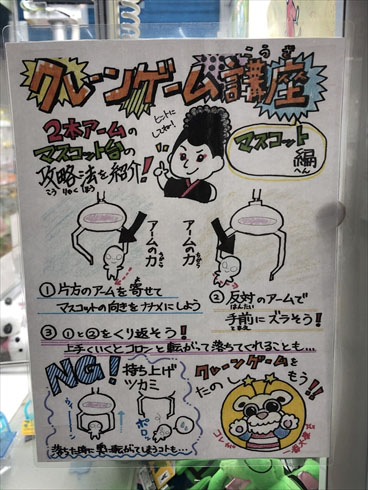 こうざ
クレーンゲーム講座
2本アームの
マスコット台の
攻略法を紹介！
こうりゃくほう
ヒントに
してね！
マスコット
編
へん
アームの力
ちから
アームの力
ちから
①片方のアームを寄せて
マスコットの向きをナナメにしよう
②反対のアームで
はんたい
手前にズラそう！
てまえ
③①と②をくり返そう！
上手くいくとコロンと転がって落ちてくれることも…
NG！
持ち上げ
ツカミ
ポロッ
落ちた時に
転がってしまうコトも…
クレーンゲームを
たのしもう！！
コレが